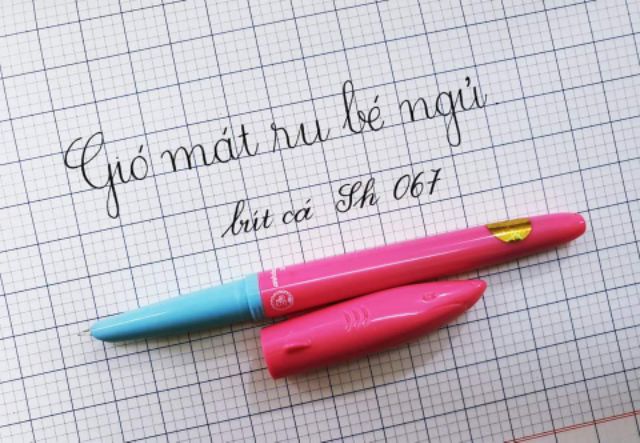 Gió mát ru bé ngủ.
bút cá Sh 067